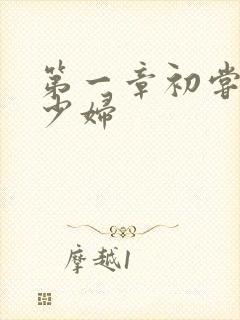 第一章初尝
少婦
摩越1